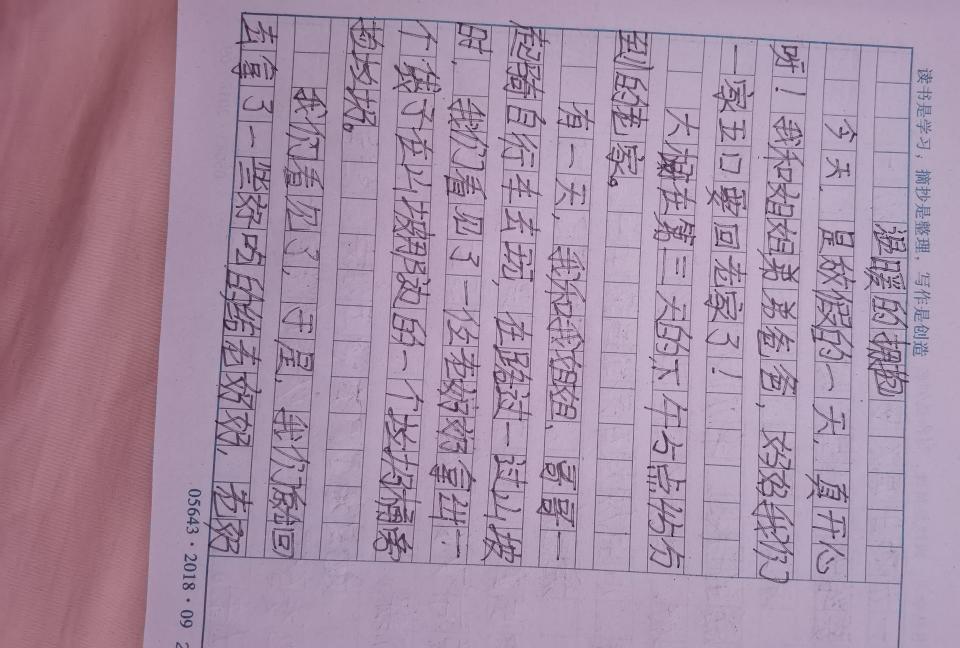 读书是学习，摘抄是整理，写作是创造
温暖的拥抱
今天，是放假的一天，真开心
呀！我和姐姐弟弟爸爸，妈妈我们
一家五口要回老家了！
大概在第三天的下午
到的老家。
有一天，我和我姐姐、哥哥一
起骑自行车去玩，在路过一过山坡
时，我们看见了一位老奶奶拿出一
个袋子在山坡那边的一个垃圾桶旁
捡垃圾。
我们看见了，于是，我们放回
去拿了一些好吃的给老奶奶，老奶
05643·2018·09